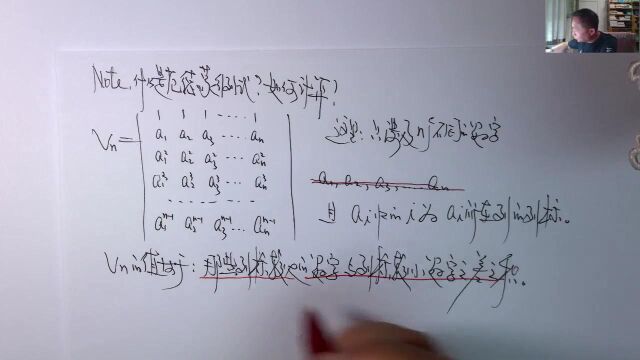 Note, 什么是范德蒙行列式?如何计算?
Vn =
1 1 1 ····· 1
a₁ a₂ a₃ ··· aₙ
a₁² a₂² a₃² ··· aₙ²
a₁³ a₂³ a₃³ ··· aₙ³
- - - - - -
a₁ⁿ⁻¹ a₂ⁿ⁻¹ a₃ⁿ⁻¹ ··· aₙⁿ⁻¹
注:只涉及n个不同的数字
a₁, a₂, a₃, ··· aₙ
且 aᵢ中的i为aᵢ所在列的列标。
Vn的值为:那些列标较大的数字与列标较小数字之差之积。